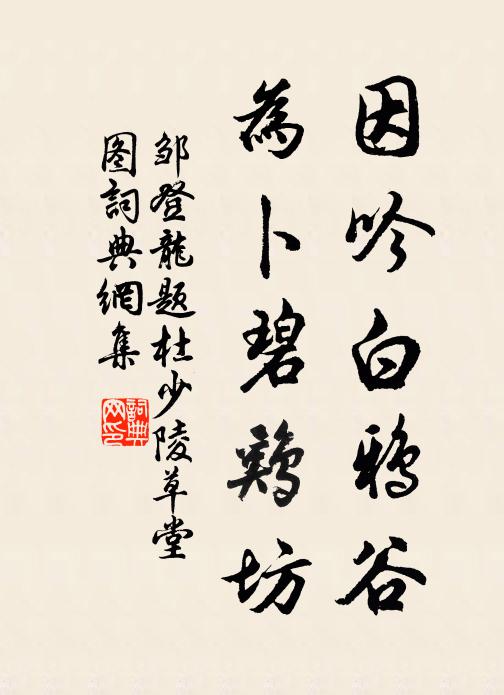 因吟白鴉谷
為卜碧鷄坊
邹登龍題杜少陵草堂
图詞典網集
詞典网印